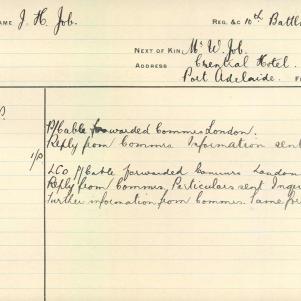 NAME J. H. Job. REG. &C 10th Battli
NEXT OF KIN Mr W. Job.
ADDRESS Hotel.
Port Adelaide.
P/Cable forwarded Commrs London.
Reply from Commrs Information sent
LCo P/Cable forwarded Commrs London
Reply from Commrs, Particulars sent
Further information from Commrs. Same for